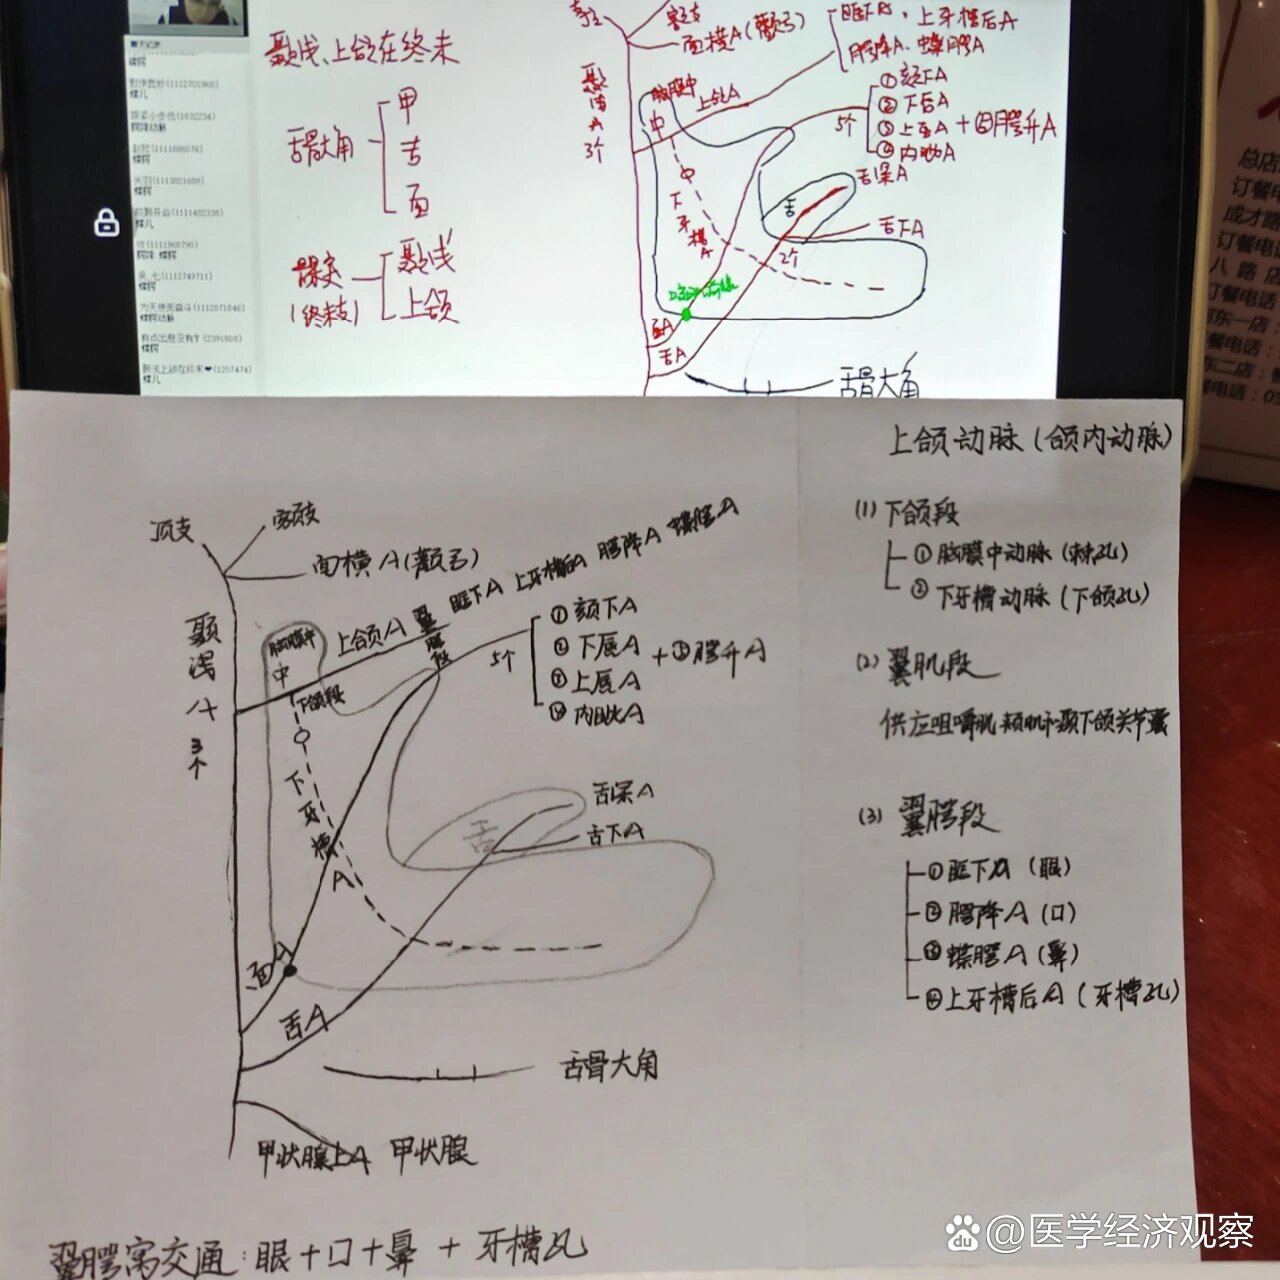 颞浅、上颌在终末
舌骨大角
甲
舌
面
(终末支)
颞浅
上颌
面横A(颧弓)
上牙槽后A
腭降A、蝶腭A
脑膜中
上颌A
颞
浅
A
3个
中
下
牙
槽
A
5个
①颏下A
②下唇A
③上唇A
④内眦A
+⑤腭升A
舌
舌深A
舌下A
2个
面A
舌A
舌骨大角
(1112701968)
(1632234)
(1111686076)
(1113021689)
(1111482338)
(1111968790)
(1112749711)
为天使而奋斗(1112871846)
有点出息没有?(2391808)
颞浅上颌在终末❤(1207474)
总店
订餐电
成才路
订餐电
八路店
订餐电话
河东一店:
订餐电话:
东二店:
餐电话:05
顶支
额支
面横A(颧弓)
颞
浅
A
3
个
脑膜中
中
上颌A
翼
腭
段
眶下A
上牙槽后A
腭降A
蝶腭A
下颌段
下
牙
槽
A
5个
①颏下A
②下唇A
③上唇A
④内眦A
+⑤腭升A
舌
舌深A
舌下A
面A
舌A
舌骨大角
甲状腺上A
甲状腺
翼腭窝交通:眼+口+鼻+牙槽孔
上颌动脉(颌内动脉)
(1)下颌段
①脑膜中动脉(棘孔)
②下牙槽动脉(下颌孔)
(2)翼肌段
供应咀嚼肌颊肌和颞下颌关节囊
(3)翼腭段
①眶下A(眼)
②腭降A(口)
③蝶腭A(鼻)
④上牙槽后A(牙槽孔)
@医学经济观察